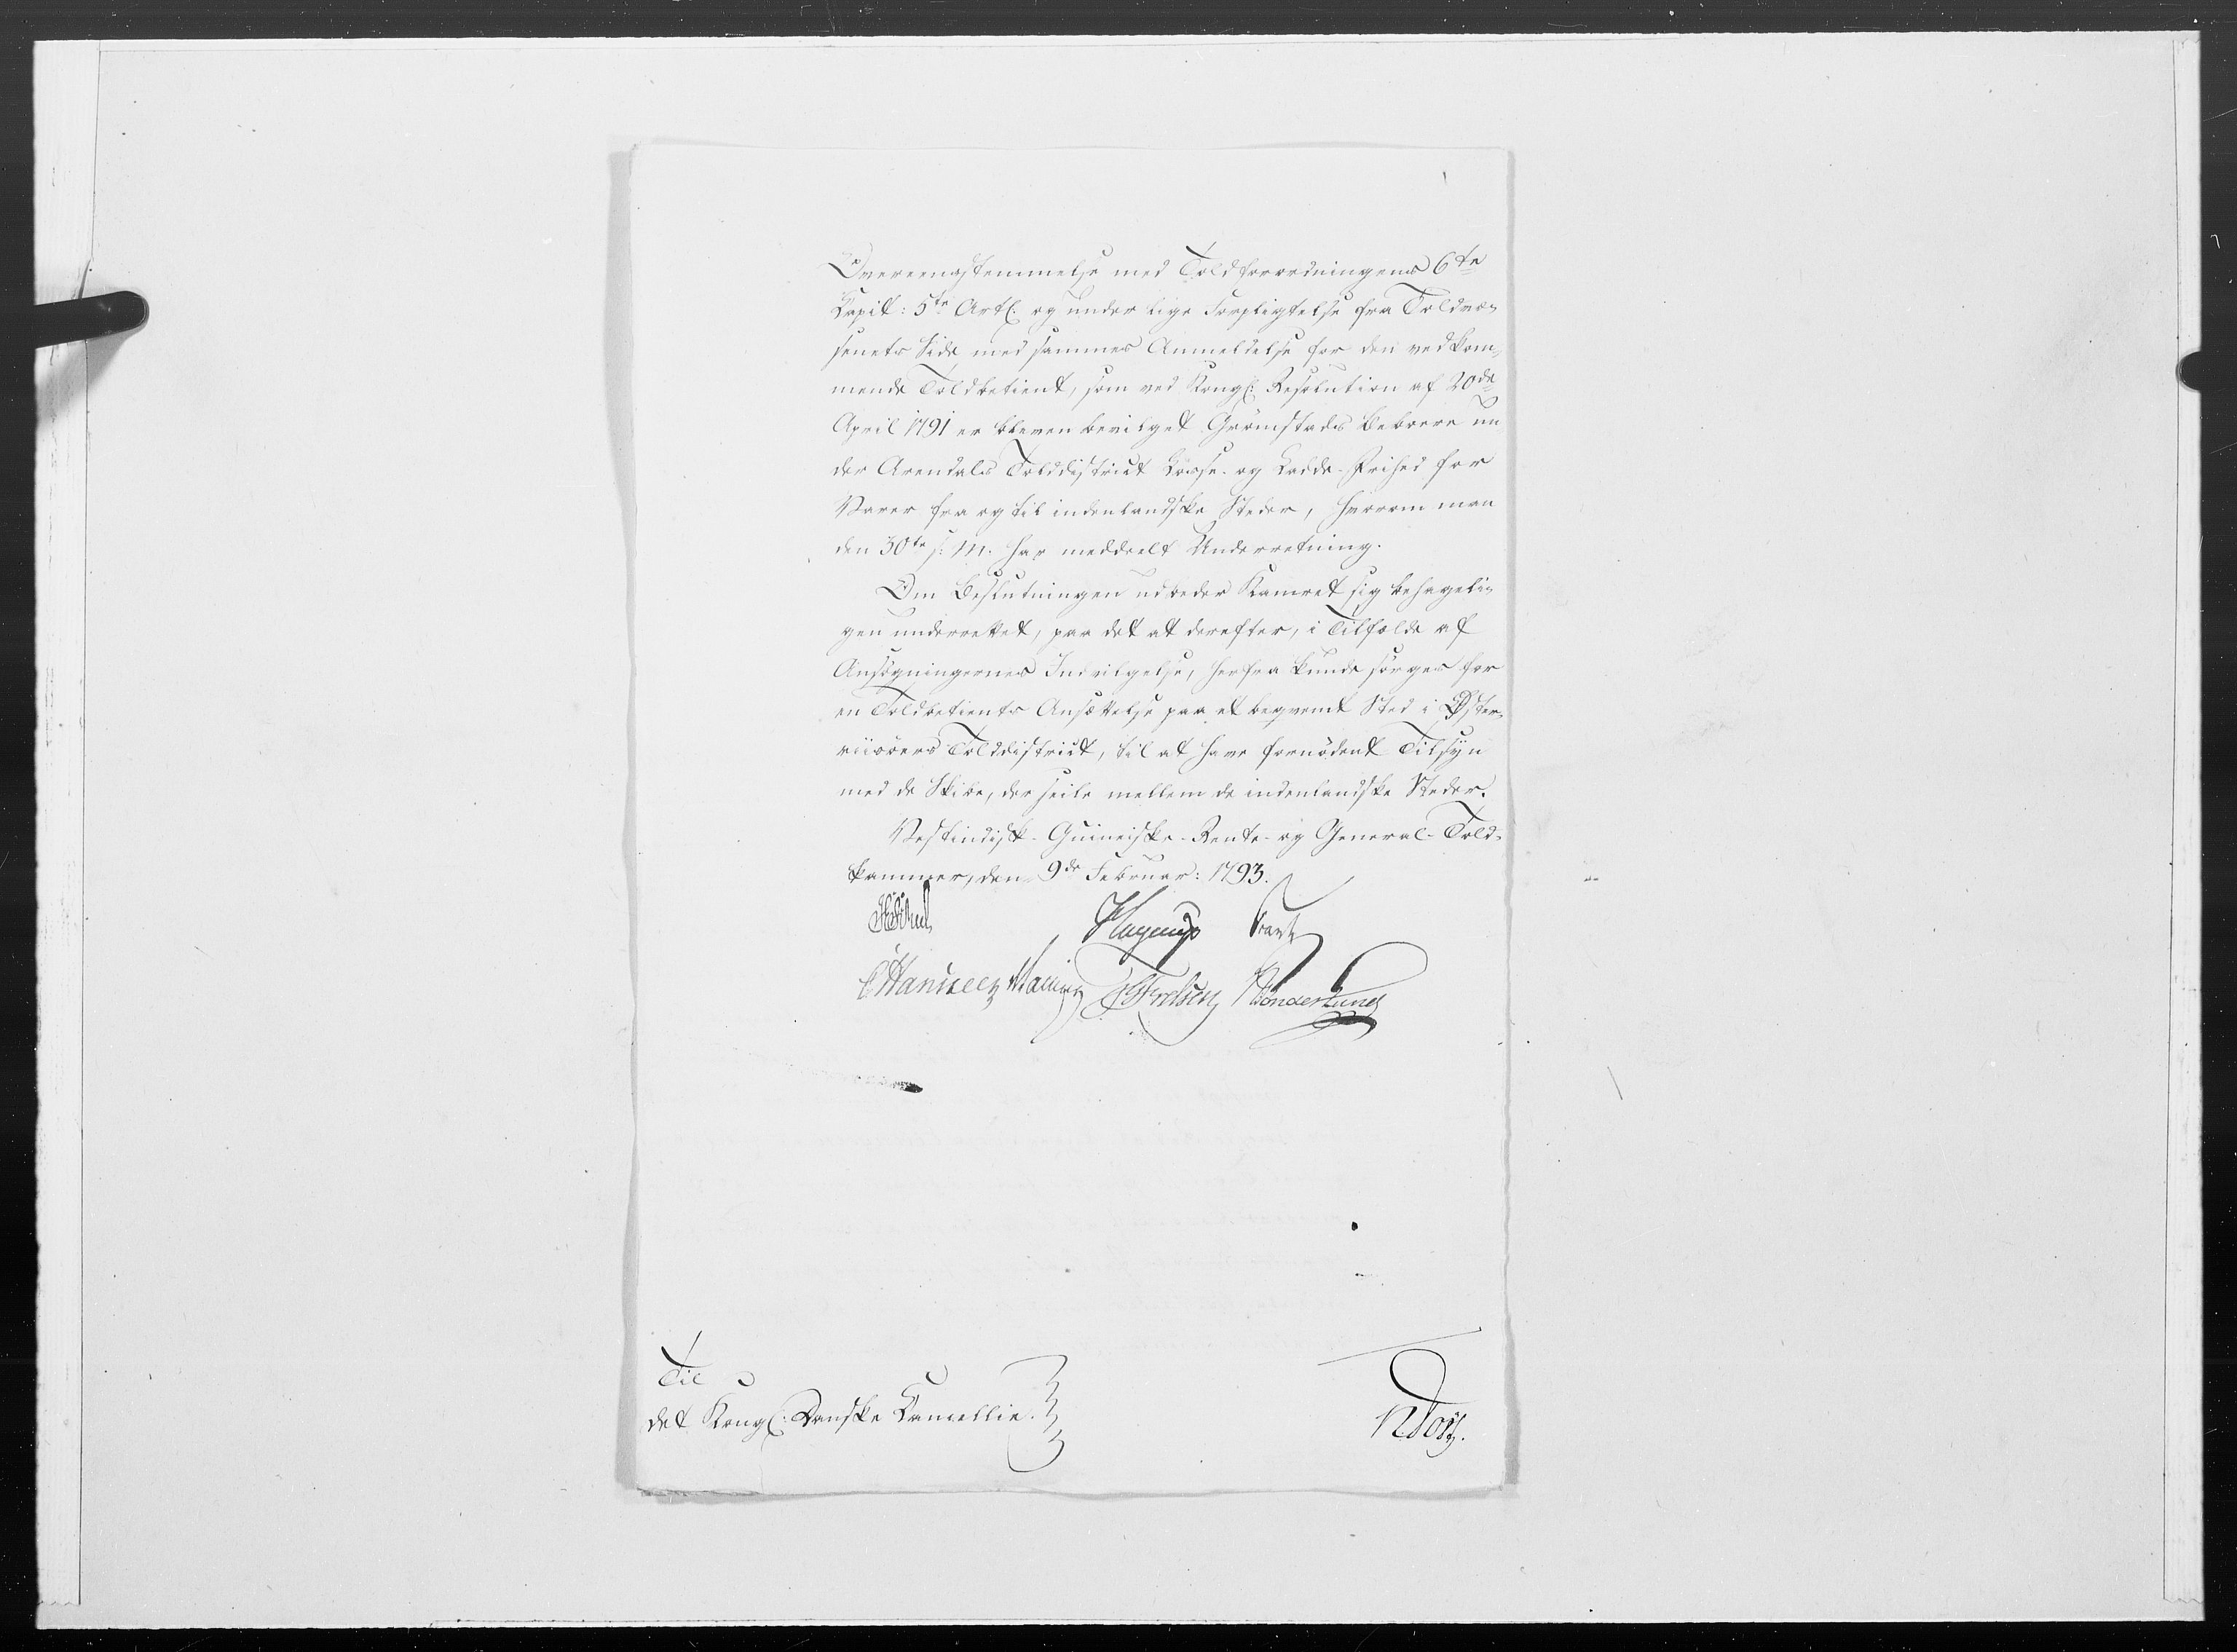 Overeensstemmelse med Toldforordningens 6te
Capit: 5te Artl. og under lige Forpligtelse fra Toldvæ-
senets Side, med sammes Anmeldelse for den vedkom-
mende Toldbetient, som ved Kongl: Resolution af 20de
April 1791 er bleven bevilget Grømstads Beboere un-
der Arendals Tolddistrict Losse- og Ladde-Frihed for
Varer fra og til indenlandske Steder, hvorom man
den 30te s: M. har meddeelt Underretning.
Om Beslutningen udbeder Kamret sig behageli-
gen underrettet, paa det at derefter, i Tilfælde af
Ansøgningernes Indvilgelse, herfra kunde sørges for
en Toldbetients Ansættelse paa et beqvemt Sted i Øster-
riisøers Tolddistrict, til at have fornødent Tilsyn
med de Skibe, der seile mellem de indenlandske Steder.
Vestindisk-Guineiske-Rente- og General-Told-
kammer, den 9de Februar: 1793.
Hagerup
Hansen Fridsch Sønderlund
Til
det Kongl: Danske Cancellie.